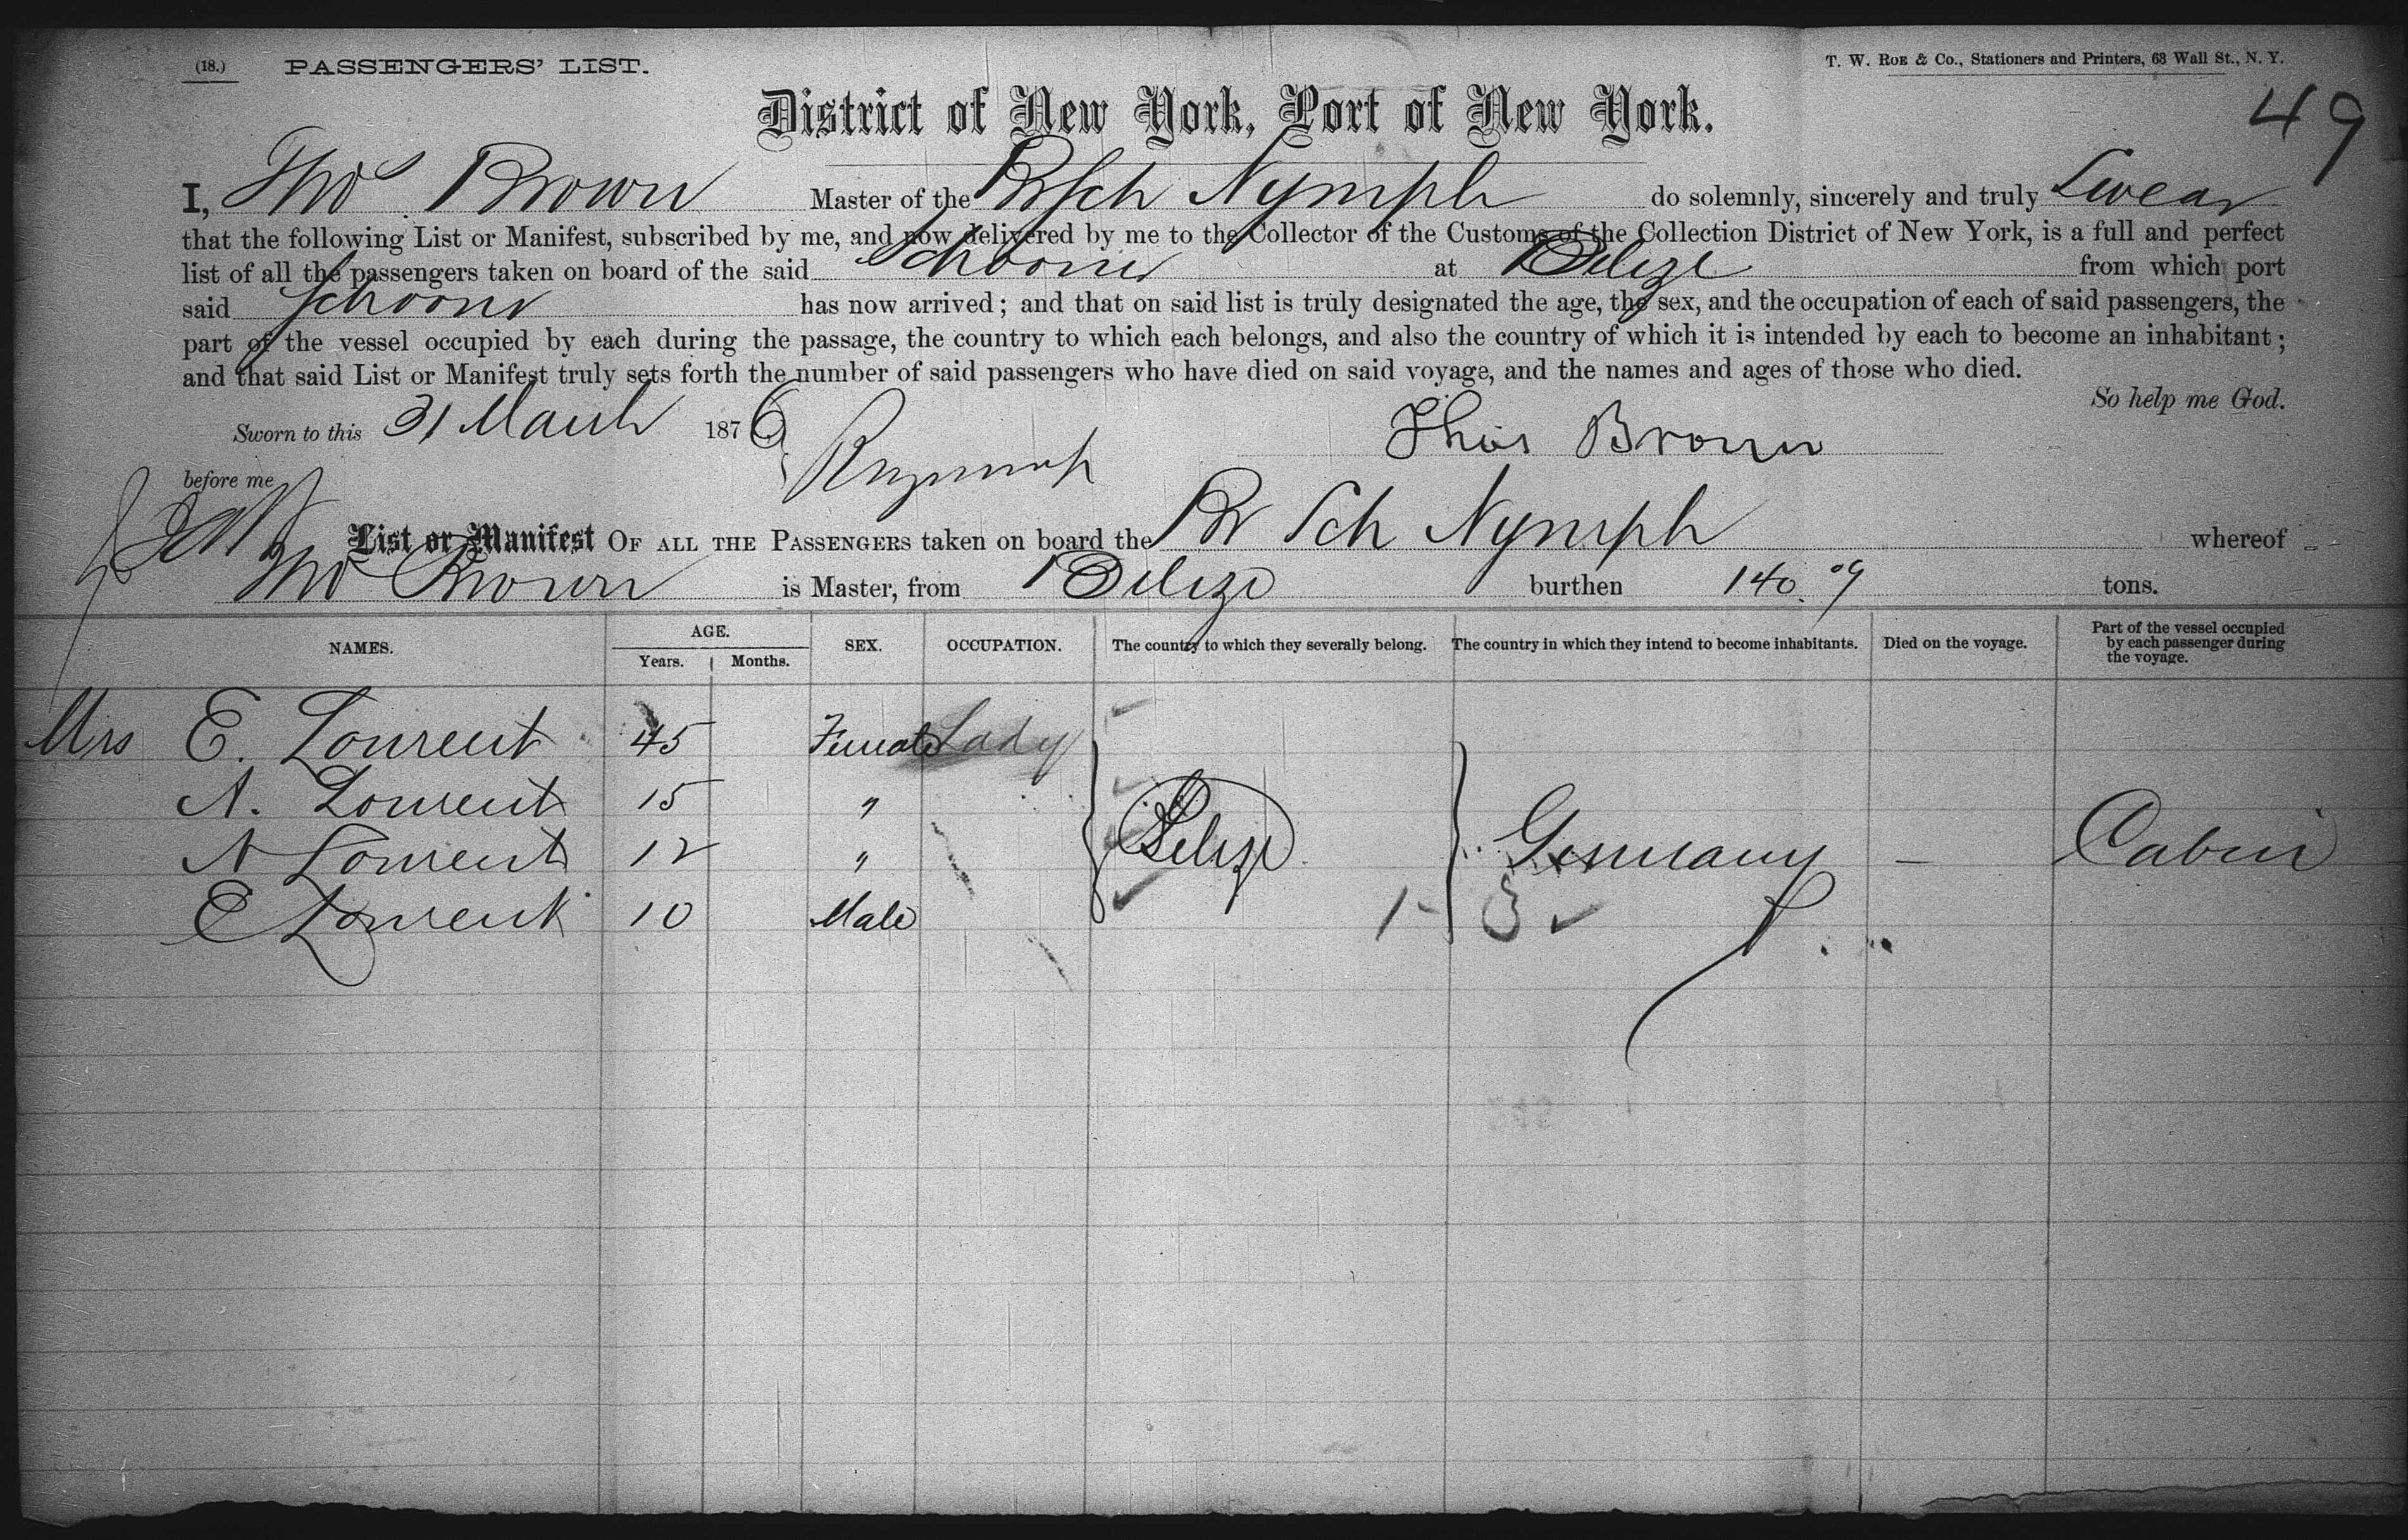 (18.) PASSENGERS' LIST. T. W. ROE & Co., Stationers and Printers, 63 Wall St., N. Y.
49
District of New York, Port of New York.
I, Thos Brown Master of the Br Sch Nymph do solemnly, sincerely and truly Swear
that the following List or Manifest, subscribed by me, and now delivered by me to the Collector of the Customs of the Collection District of New York, is a full and perfect
list of all the passengers taken on board of the said Schooner at Belize from which port
said Schooner has now arrived; and that on said list is truly designated the age, the sex, and the occupation of each of said passengers, the
part of the vessel occupied by each during the passage, the country to which each belongs, and also the country of which it is intended by each to become an inhabitant;
and that said List or Manifest truly sets forth the number of said passengers who have died on said voyage, and the names and ages of those who died.
So help me God.
Sworn to this 31 March 1876 Thos Brown
before me
List or Manifest OF ALL THE PASSENGERS taken on board the Br Sch Nymph whereof
Thos Brown is Master, from Belize burthen 140.09 tons.
NAMES. AGE. Years. Months. SEX. OCCUPATION. The country to which they severally belong. The country in which they intend to become inhabitants. Died on the voyage. Part of the vessel occupied by each passenger during the voyage.
Mrs E. Lourent 45 Female Lady
A. Lourent 15 "
N Lourent 12 " Belize Germany — Cabin
E Lourent 10 Male